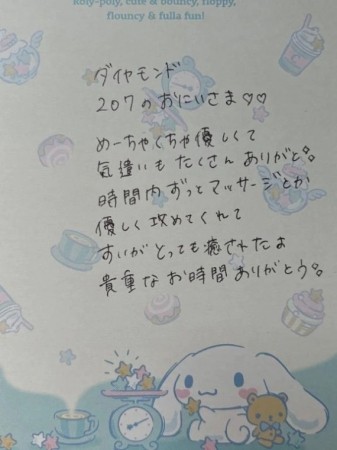 roly-poly, cute & bouncy, floppy,
flouncy & fulla fun!
ダイヤモンド
207のおにいさま♡♡
めーちゃくちゃ優しくて
気遣いも たくさん ありがと
時間内 ずっと マッサージとか
優しく 攻めてくれて
すいがとっても癒されたよ
貴重な お時間 ありがとう